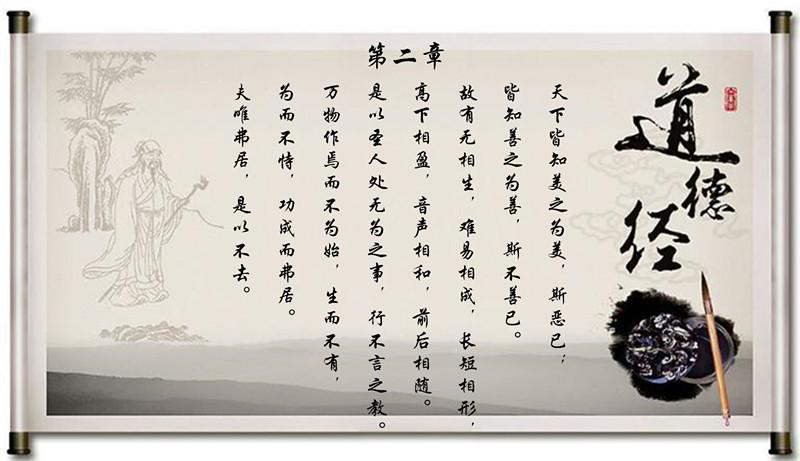 道德经
第二章
天下皆知美之为美，斯恶已；
皆知善之为善，斯不善已。
故有无相生，难易相成，长短相形，
高下相盈，音声相和，前后相随。
是以圣人处无为之事，行不言之教。
万物作焉而不为始，生而不有，
为而不恃，功成而弗居。
夫唯弗居，是以不去。